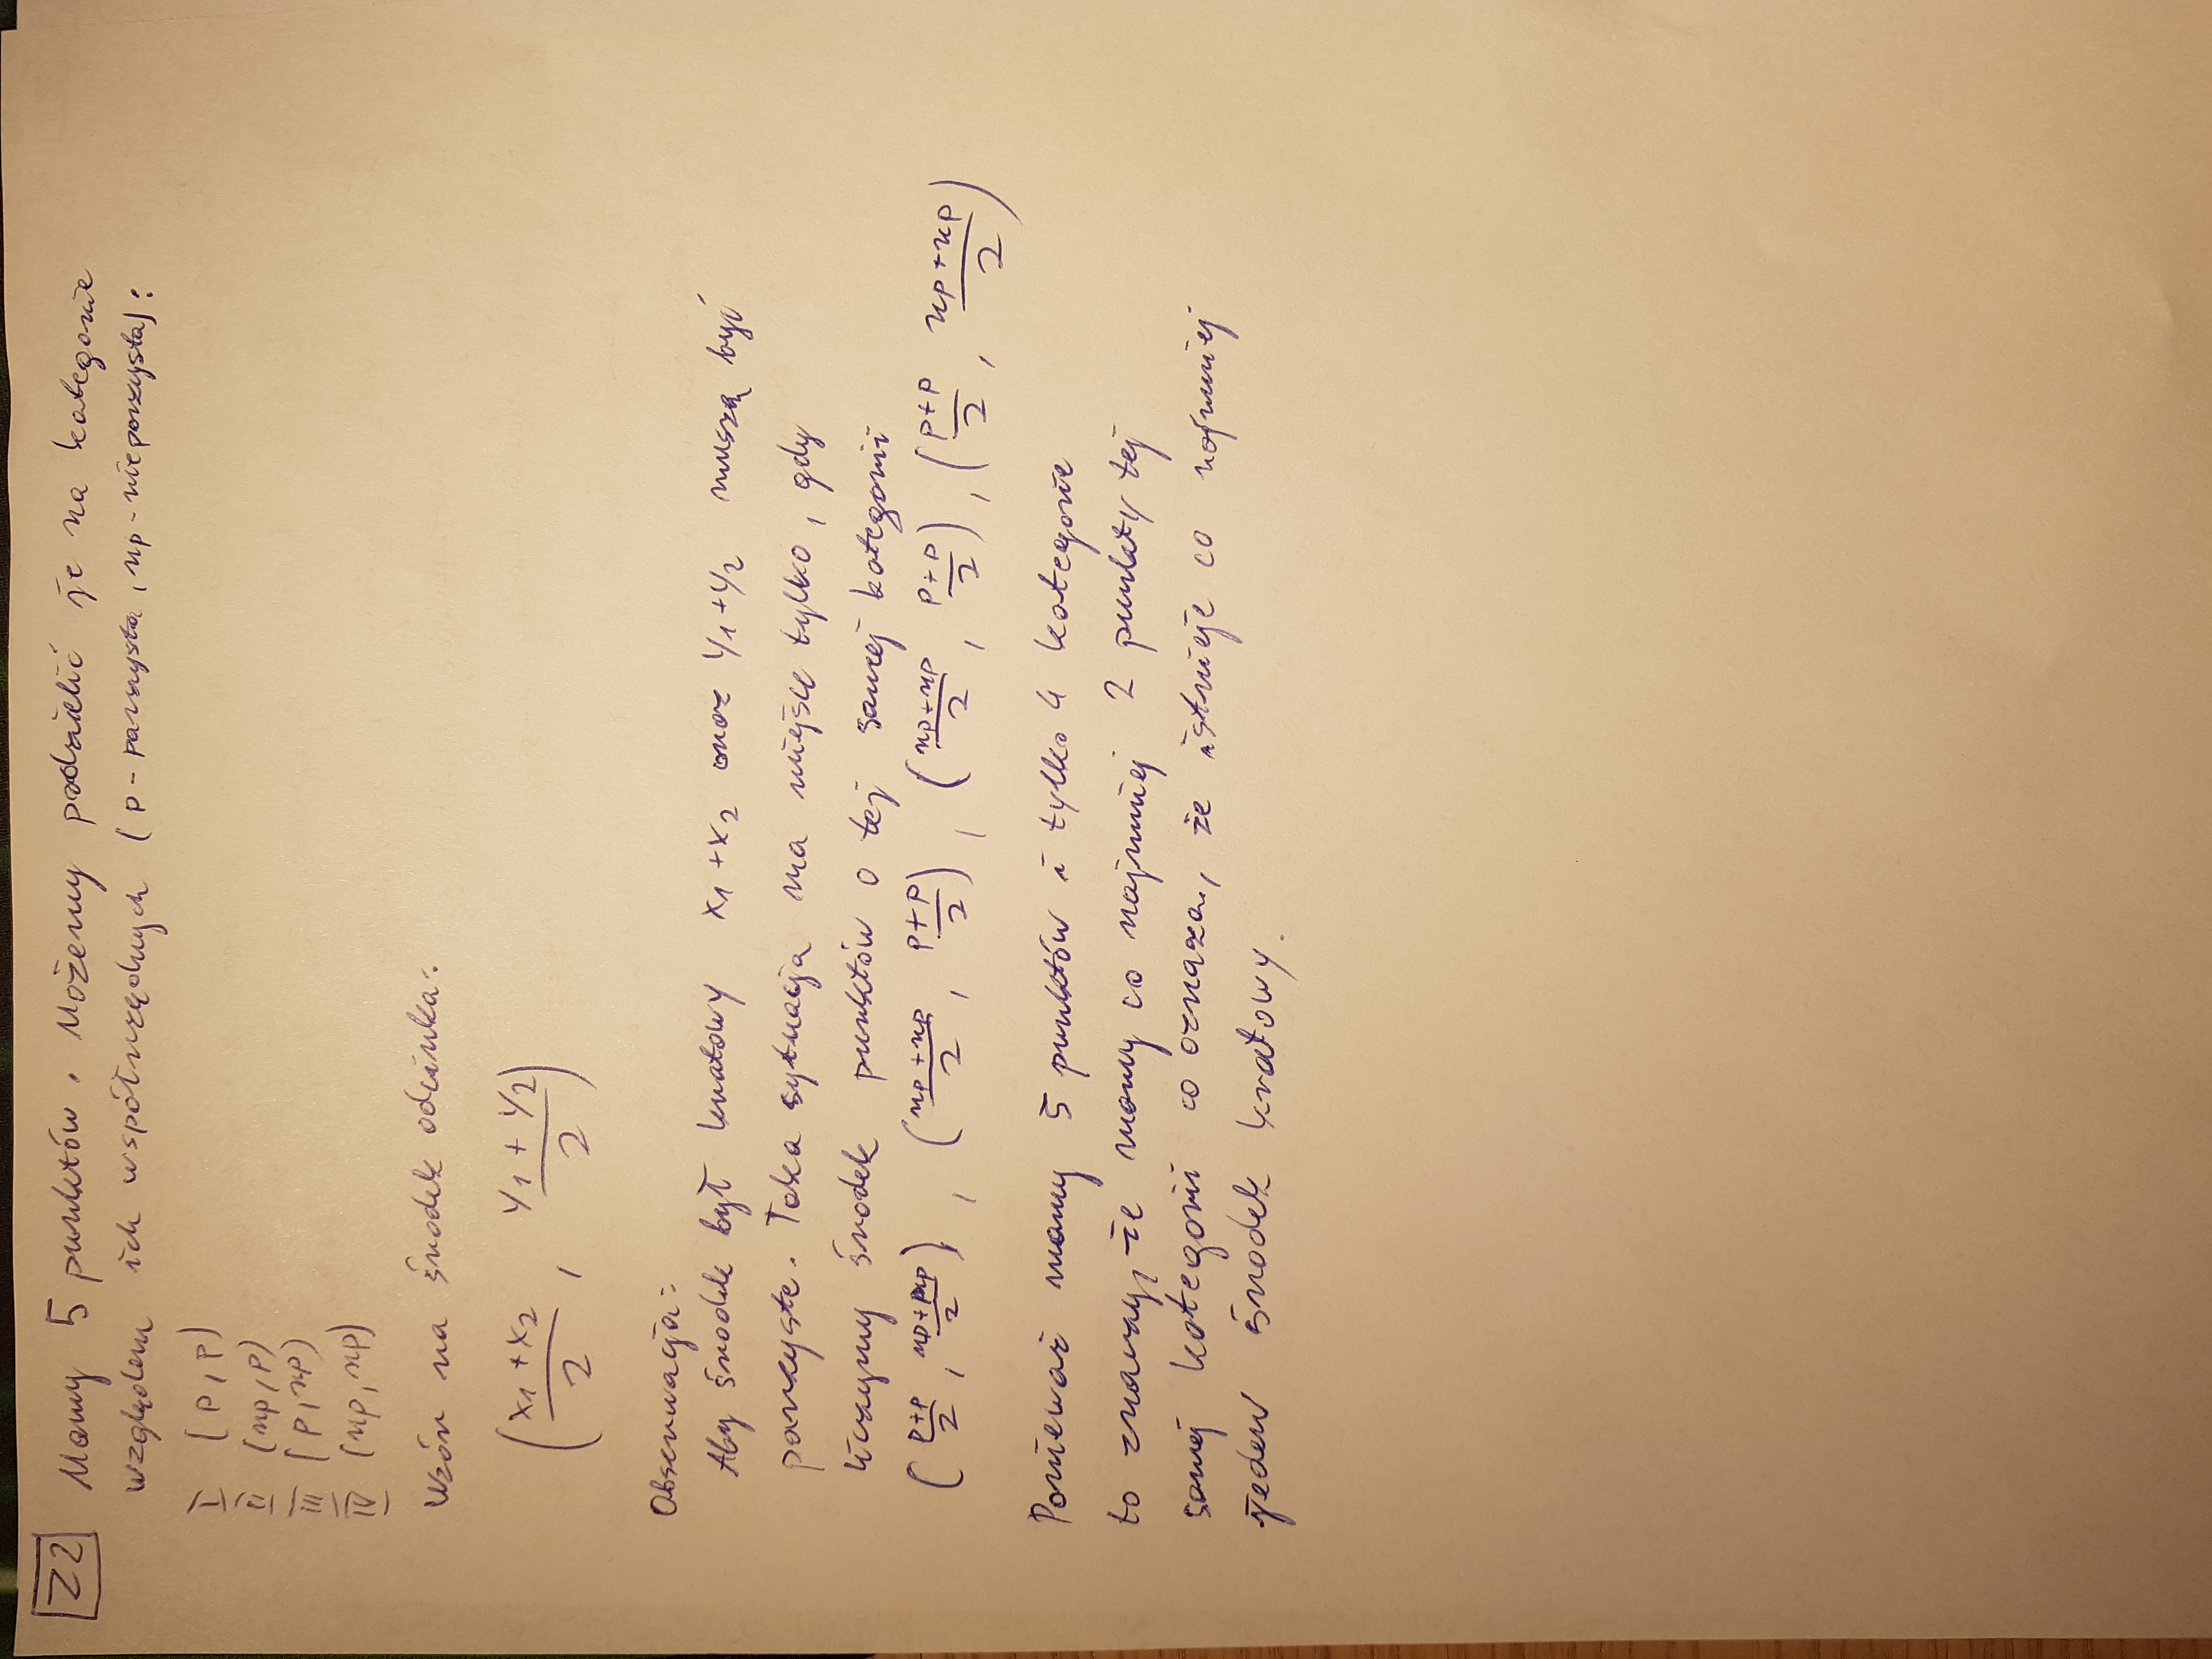 Z2 Mamy 5 punktów. Możemy podzielić je na kategorie
względem ich współrzędnych (p - parzysta, np - nieparzysta):
I (p, p)
II (np, p)
III (p, np)
IV (np, np)
Wzór na środek odcinka:
(x₁ + x₂ / 2, y₁ + y₂ / 2)
Obserwacja:
Aby środek był kratowy x₁ + x₂ oraz y₁ + y₂ muszą być
parzyste. Taka sytuacja ma miejsce tylko, gdy
liczymy środek punktów o tej samej kategorii
(p+p / 2, np+np / 2), (np+np / 2, p+p / 2), (np+np / 2, p+p / 2), (p+p / 2, np+np / 2)
Ponieważ mamy 5 punktów i tylko 4 kategorie
to znaczy, że mamy co najmniej 2 punkty tej
samej kategorii co oznacza, że istnieje co najmniej
jeden środek kratowy.